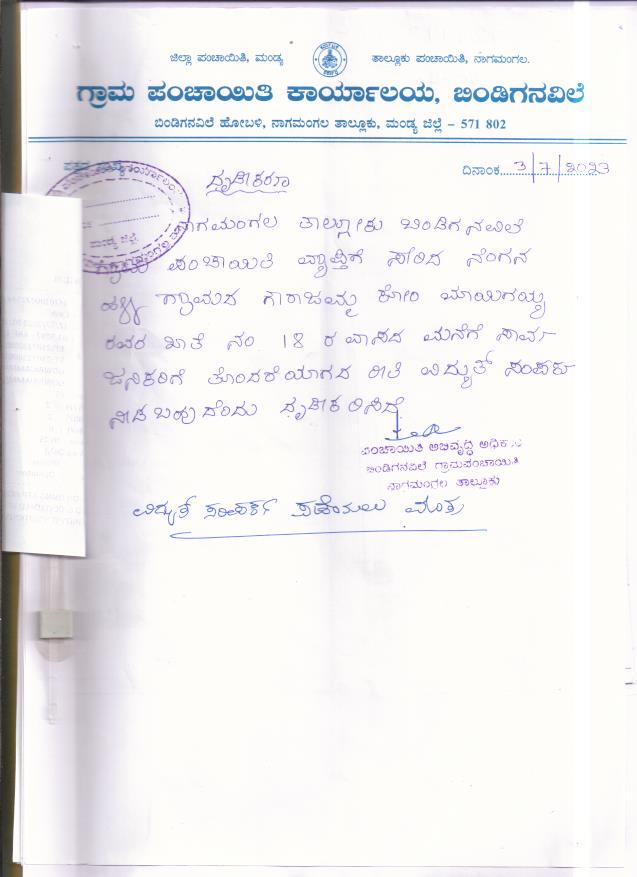 ಜಿಲ್ಲಾ ಪಂಚಾಯಿತಿ, ಮಂಡ್ಯ ತಾಲ್ಲೂಕು ಪಂಚಾಯಿತಿ, ನಾಗಮಂಗಲ.
ಗ್ರಾಮ ಪಂಚಾಯಿತಿ ಕಾರ್ಯಾಲಯ, ಬಿಂಡಿಗನವಿಲೆ
ಬಿಂಡಿಗನವಿಲೆ ಹೋಬಳಿ, ನಾಗಮಂಗಲ ತಾಲ್ಲೂಕು, ಮಂಡ್ಯ ಜಿಲ್ಲೆ – 571 802
ದಿನಾಂಕ 3/7/2023
ಮಂಡ್ಯ ಜಿಲ್ಲೆ
ದೃಢೀಕರಣ
ನಾಗಮಂಗಲ ತಾಲ್ಲೂಕು ಬಿಂಡಿಗನವಿಲೆ
ಗ್ರಾಮ ಪಂಚಾಯಿತಿ ವ್ಯಾಪ್ತಿಗೆ ಸೇರಿದ
ಗ್ರಾಮದ ಗೌರಾಜಮ್ಮ ಕೋಂ ಮಾಯಿಗಯ್ಯ
ರವರ ಖಾತೆ ನಂ 18 ರ ವಾಸದ ಮನೆಗೆ ಸಾರ್ವ
ಜನಿಕರಿಗೆ ತೊಂದರೆಯಾಗದ ರೀತಿ ವಿದ್ಯುತ್ ಸಂಪರ್ಕ
ನೀಡಬಹುದೆಂದು ದೃಢೀಕರಿಸಿದೆ
ಪಂಚಾಯಿತಿ ಅಭಿವೃದ್ಧಿ ಅಧಿಕಾರಿ
ಬಿಂಡಿಗನವಿಲೆ ಗ್ರಾಮಪಂಚಾಯಿತಿ
ನಾಗಮಂಗಲ ತಾಲ್ಲೂಕು
ವಿದ್ಯುತ್ ಸಂಪರ್ಕ ಪಡೆಯಲು ಮಾತ್ರ